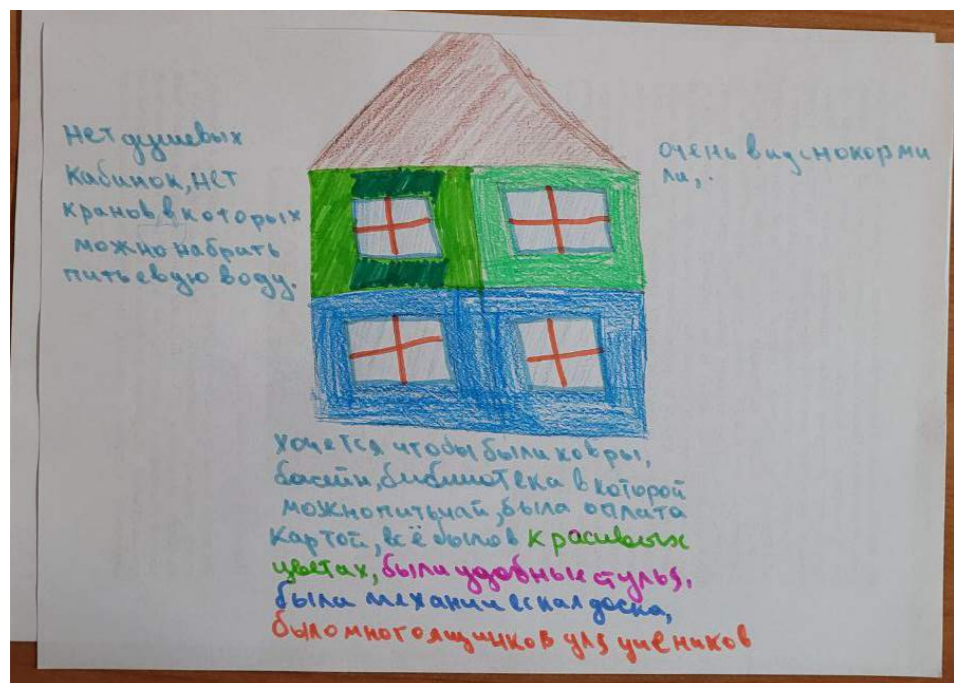 нет душевых
кабинок, нет
кранов в которых
можно набрать
питьевую воду.
очень вкусно корми
ли, .
хочется чтобы были ковры,
басейн, библиотека в которой
можно пить чай, была оплата
картой, всё было в красивых
цветах, были удобные стулья,
была механическая доска,
было много ящиков для учеников